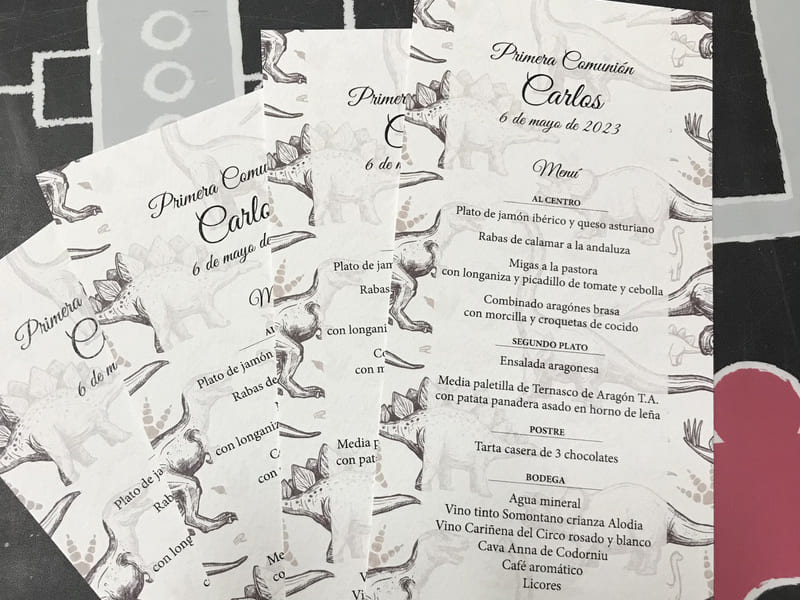 Primera
C
6 de m
Plato de ja
Raba
con long
c
Primera Comu
Carlo
6 de mayo de
M
AL
Plato de jamón
Rabas de
con longaniz
Co
con
Me
co
Primer
C
6 de m
Plato de jam
Rabas
con longani
Co
con m
Media p
con pat
V
Vi
Primera Comunión
Carlos
6 de mayo de 2023
Menú
AL CENTRO
Plato de jamón ibérico y queso asturiano
Rabas de calamar a la andaluza
Migas a la pastora
con longaniza y picadillo de tomate y cebolla
Combinado aragónes brasa
con morcilla y croquetas de cocido
SEGUNDO PLATO
Ensalada aragonesa
Media paletilla de Ternasco de Aragón T.A.
con patata panadera asado en horno de leña
POSTRE
Tarta casera de 3 chocolates
BODEGA
Agua mineral
Vino tinto Somontano crianza Alodia
Vino Cariñena del Circo rosado y blanco
Cava Anna de Codorniu
Café aromático
Licores